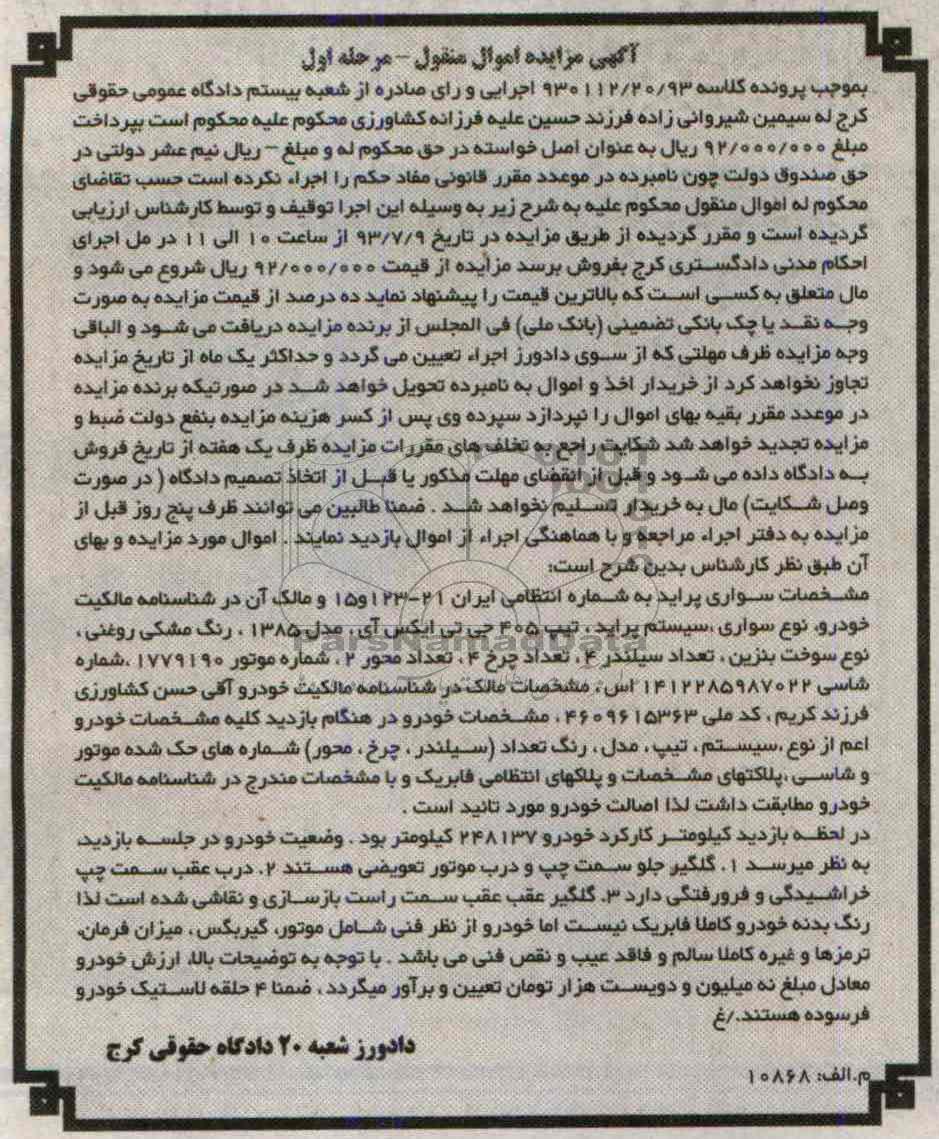 آگهی مزایده اموال منقول - مرحله اول
بموجب پرونده کلاسه ۹۳۰۱۱۲/۲۰/۹۳ اجرایی و رای صادره از شعبه بیستم دادگاه عمومی حقوقی
کرج له سیمین شیروانی زاده فرزند حسین علیه فرزانه کشاورزی محکوم علیه محکوم است بپرداخت
مبلغ ۹۲/۰۰۰/۰۰۰ ریال به عنوان اصل خواسته در حق محکوم له و مبلغ – ریال نیم عشر دولتی در
حق صندوق دولت چون نامبرده در موعدد مقرر قانونی مفاد حکم را اجراء نکرده است حسب تقاضای
محکوم له اموال منقول محکوم علیه به شرح زیر به وسیله این اجرا توقیف و توسط کارشناس ارزیابی
گردیده است و مقرر گردیده از طریق مزایده در تاریخ ۹۳/۷/۹ از ساعت ۱۰ الی ۱۱ در مل اجرای
احکام مدنی دادگستری کرج بفروش برسد مزایده از قیمت ۹۲/۰۰۰/۰۰۰ ریال شروع می شود و
مال متعلق به کسی است که بالاترین قیمت را پیشنهاد نماید ده درصد از قیمت مزایده به صورت
وجه نقد یا چک بانکی تضمینی (بانک ملی) فی المجلس از برنده مزایده دریافت می شود و الباقی
وجه مزایده ظرف مهلتی که از سوی دادورز اجراء تعیین می گردد و حداکثر یک ماه از تاریخ مزایده
تجاوز نخواهد کرد از خریدار اخذ و اموال به نامبرده تحویل خواهد شد در صورتیکه برنده مزایده
در موعدد مقرر بقیه بهای اموال را نپردازد سپرده وی پس از کسر هزینه مزایده بنفع دولت ضبط و
مزایده تجدید خواهد شد شکایت راجع به تخلف های مقررات مزایده ظرف یک هفته از تاریخ فروش
به دادگاه داده می شود و قبل از انقضای مهلت مذکور یا قبل از اتخاذ تصمیم دادگاه ( در صورت
وصل شکایت) مال به خریدار تسلیم نخواهد شد . ضمنا طالبین می توانند ظرف پنج روز قبل از
مزایده به دفتر اجراء مراجعه و با هماهنگی اجراء از اموال بازدید نمایند . اموال مورد مزایده و بهای
آن طبق نظر کارشناس بدین شرح است:
مشخصات سواری پراید به شماره انتظامی ایران ۲۱-۱۲۳و۱۵ و مالک آن در شناسنامه مالکیت
خودرو، نوع سواری ،سیستم پراید ، تیپ ۴۰۵ جی تی ایکس آی ، مدل ۱۳۸۵ ، رنگ مشکی روغنی ،
نوع سوخت بنزین ، تعداد سیلندر ۴ ، تعداد چرخ ۴ ، تعداد محور ۲ ، شماره موتور ۱۷۷۹۱۹۰ ،شماره
شاسی ۱۴۱۲۲۸۵۹۸۷۰۲۲ اس ، مشخصات مالک در شناسنامه مالکیت خودرو آقی حسن کشاورزی
فرزند کریم ، کد ملی ۴۶۰۹۶۱۵۳۶۳ ، مشخصات خودرو در هنگام بازدید کلیه مشخصات خودرو
اعم از نوع ،سیستم ، تیپ ، مدل ، رنگ تعداد (سیلندر ، چرخ ، محور) شماره های حک شده موتور
و شاسی ،پلاکتهای مشخصات و پلاکهای انتظامی فابریک و با مشخصات مندرج در شناسنامه مالکیت
خودرو مطابقت داشت لذا اصالت خودرو مورد تائید است .
در لحظه بازدید کیلومتر کارکرد خودرو ۲۴۸۱۳۷ کیلومتر بود . وضعیت خودرو در جلسه بازدید،
به نظر میرسد ۱. گلگیر جلو سمت چپ و درب موتور تعویضی هستند ۲. درب عقب سمت چپ
خراشیدگی و فرورفتگی دارد ۳. گلگیر عقب عقب سمت راست بازسازی و نقاشی شده است لذا
رنگ بدنه خودرو کاملا فابریک نیست اما خودرو از نظر فنی شامل موتور، گیربکس ، میزان فرمان،
ترمزها و غیره کاملا سالم و فاقد عیب و نقص فنی می باشد . با توجه به توضیحات بالا، ارزش خودرو
معادل مبلغ نه میلیون و دویست هزار تومان تعیین و برآور میگردد ، ضمنا ۴ حلقه لاستیک خودرو
فرسوده هستند./غ
دادورز شعبه ۲۰ دادگاه حقوقی کرج
م.الف: ۱۰۸۶۸
ParsNamadData